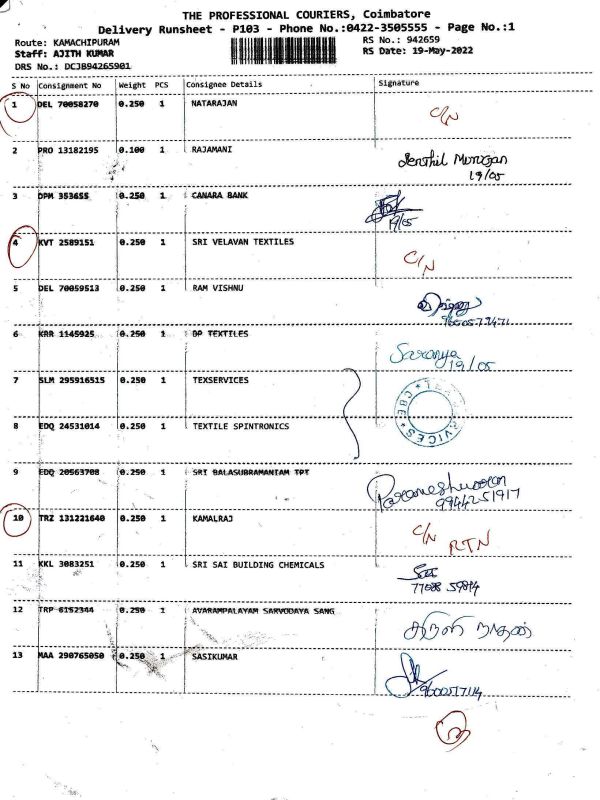 THE PROFESSIONAL COURIERS, Coimbatore
Delivery Runsheet - P103 - Phone No.:0422-3505555 - Page No.:1
Route: KAMACHIPURAM RS No.: 942659
Staff: AJITH KUMAR RS Date: 19-May-2022
DRS No.: DCJB94265901
S No Consignment No Weight PCS Consignee Details Signature
1 DEL 70058270 0.250 1 NATARAJAN
C/N
2 PRO 13182195 0.100 1 RAJAMANI
Senthil Murugan
19/05
3 DPM 353655 0.250 1 CANARA BANK
19/05
4 KVT 2589151 0.250 1 SRI VELAVAN TEXTILES
C/N
5 DEL 70059513 0.250 1 RAM VISHNU
6 KRR 1145925 0.250 1 DP TEXTILES
Saranya
19/05
7 SLM 295916515 0.250 1 TEXSERVICES
8 EDQ 24531014 0.250 1 TEXTILE SPINTRONICS
9 EDQ 20563708 0.250 1 SRI BALASUBRAMANIAM TPT
Parameshwaran
9944251917
10 TRZ 131221640 0.250 1 KAMALRAJ
C/N RTN
11 KKL 3083251 0.250 1 SRI SAI BUILDING CHEMICALS
12 TRP 6152344 0.250 1 AVARAMPALAYAM SARVODAYA SANG
13 MAA 290765050 0.250 1 SASIKUMAR